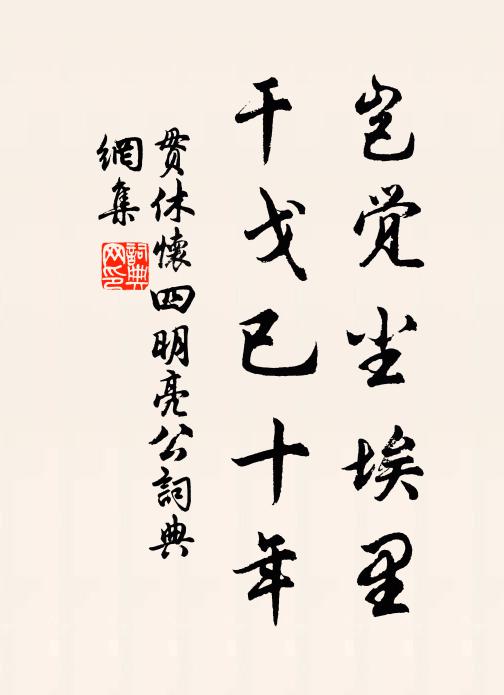 岂觉尘埃里
干戈已十年
贯休懷四明亮公詞典
網集
詞典网印